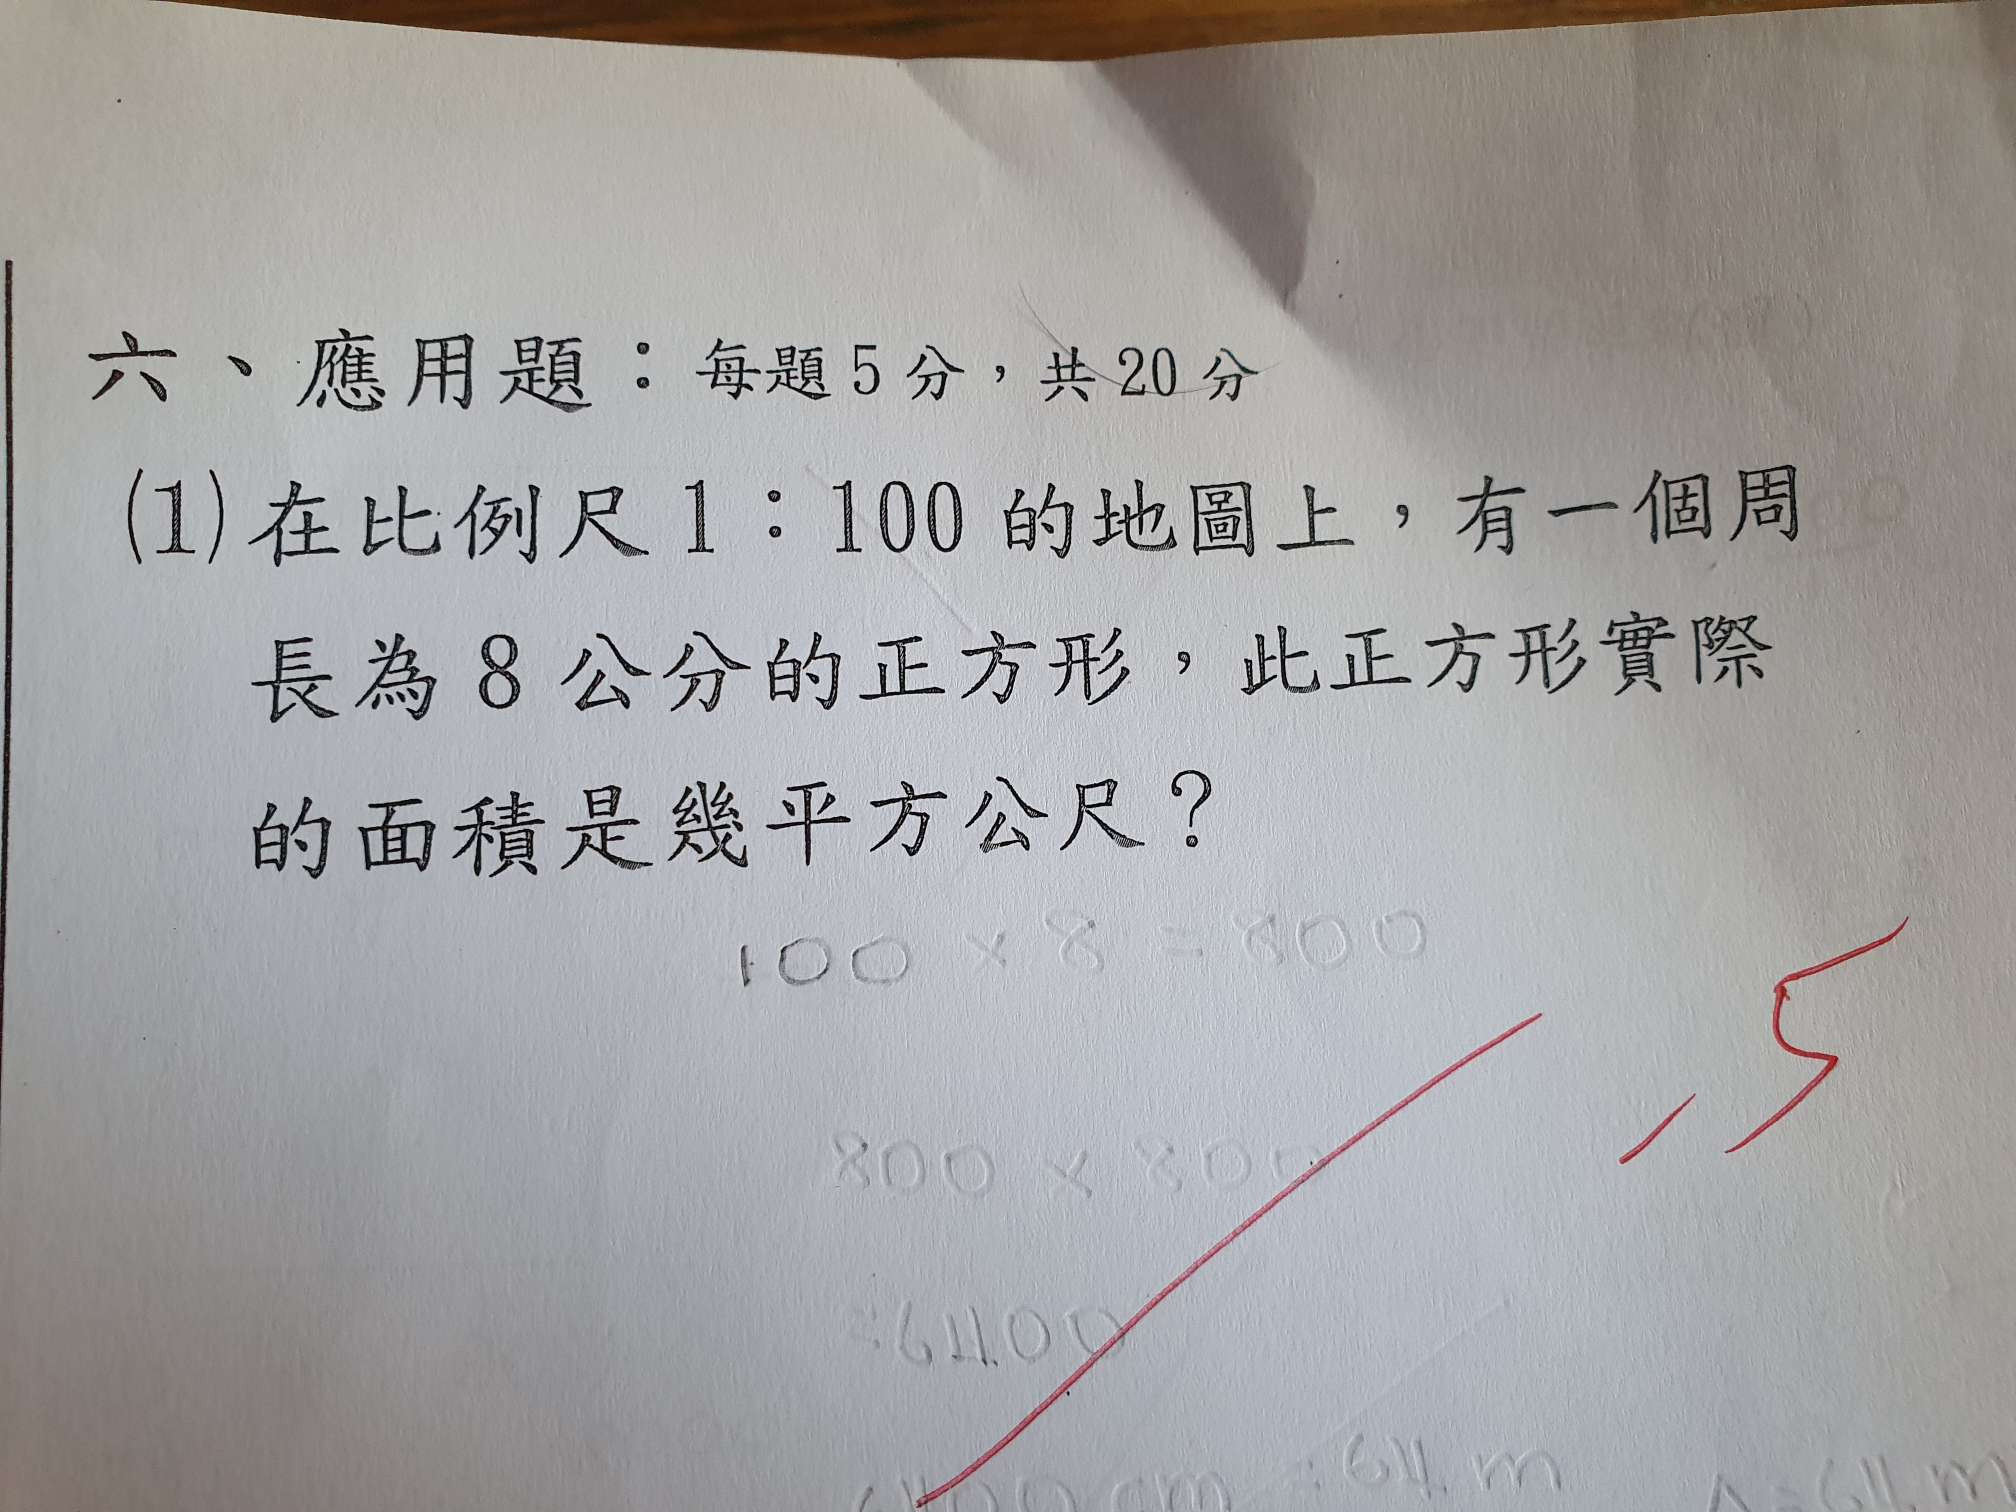 六、應用題：每題 5 分，共 20 分
(1) 在比例尺 1：100 的地圖上，有一個周
長為 8 公分的正方形，此正方形實際
的面積是幾平方公尺？
100 × 8 = 800
800 × 800
= 6400
6400 cm = 64 m
-5